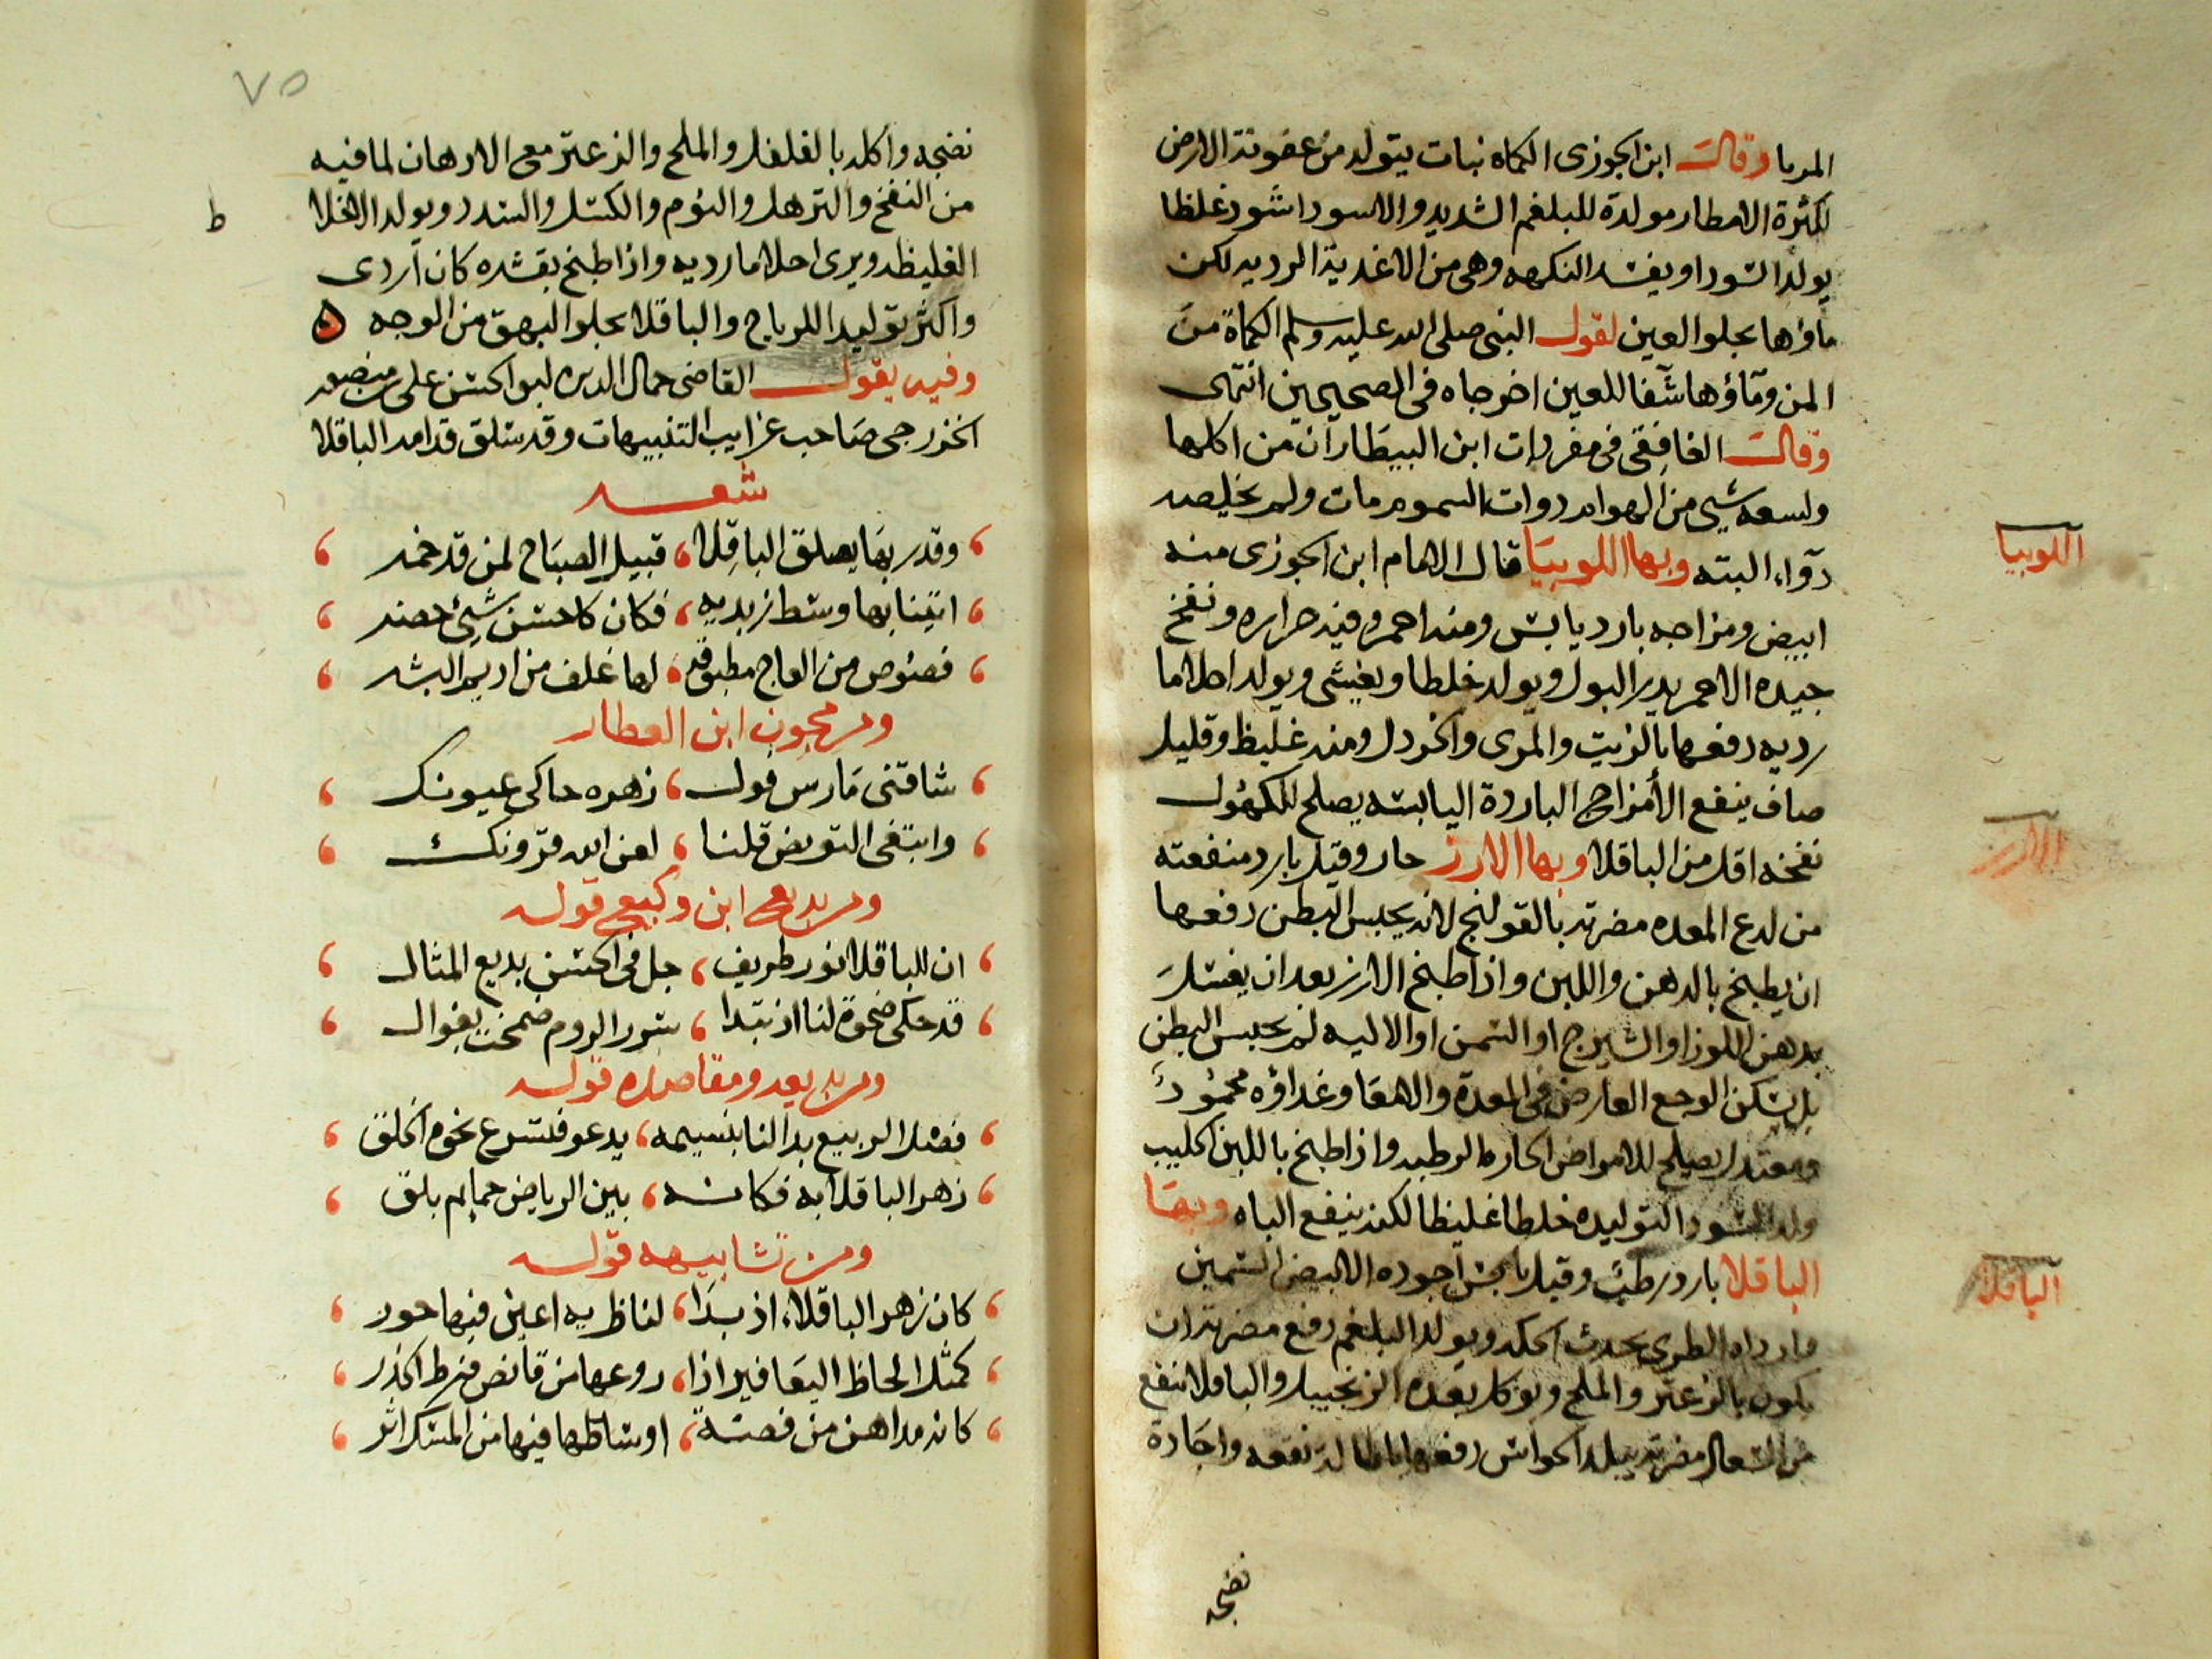 المربا وقال ابن الجوزى الكماه نبات يتولد من عفونة الارض
لكثرة الامطار مولدة للبلغم الشديد والاسود اشود غلظا
يولد السودا ويفسد النكهه وهى من الاغدية الرديه لكن
ماؤها يجلو العين لقول النبى صلى الله عليه وسلم الكماة من
المن وماؤها شفا للعين اخرجاه فى الصحيحين انتهى
وقال الغافقى فى مفردات ابن البيطار ان من اكلها
ولسعه شيى من الهوام دوات السموم مات ولم يخلصه
دوآء البته وبها اللوبيا قال الامام ابن الجوزى منه
ابيض ومزاجه بارد يابس ومنه احمر وفيه حراره ونفخ
جيده الاحمر يدر البول ويولد خلطا ويغشى ويولد احلاما
رديه دفعها بالزيت والمرى والخردل ومنه غليظ وقليل
صاف ينفع الأمزاج الباردة اليابسه يصلح للكهول
نفخه اقل من الباقلا وبها الارز حار وقيل بارد منفعته
من لدع المعده مضرته بالقولنج لانه يحبس البطن دفعها
ان يطبخ بالدهن واللبن واذا طبخ الارز بعد ان يغسل
بدهن اللوز او الشيرج او السمن او الاليه لم يحبس البطن
بل يسكن الوجع العارض فى المعدة والامعا وغداؤه محمود
ومعتدل يصلح للامراض الحاره الرطبه واذا طبخ باللبن الحليب
ولد السودا لتوليده خلطا غليظا لكنه ينفع الباه وبها
الباقلا بارد رطب وقيل يابس اجوده الابيض السمين
واردا الطرى يحدث الحكه ويولد البلغم دفع مضرته ان
يكون بالزعتر والملح ويوكل بعده الزنجبيل والباقلا تنفع
من السعال مضرته يبلد الحواس دفعها باطالة نقعه واجادة
نضجه
اللوبيا
الارز
الباقلا
٧٥
نضجه واكله بالفلفل والملح والزعتر مع الادهان لما فيه
من النفخ والترهل والنوم والكسل والسدد ويولد الاخلا
ط
الغليظه ويرى احلاما رديه واذا طبخ بقشره كان اردى
واكثر توليدا للرياح والباقلا يجلو البهق من الوجه ه
وفيه يقول القاضى جمال الدين ابو الحسن على بن منصور
الخزرجى صاحب غرايب التنبيهات وقد سلق قدامه الباقلا
شعر
وقد ربما يصلق الباقلا، قبيل الصباح لمن قد خمر
اتينا بها وسط زبديه، فكان كاحسن شيئ حضر
فصوص من العاج مطبوقه، لها غلف من اديم البشر
ومن مجون ابن العطار
شاقنى مارس فول، زهره حاكى عيونك
وابتغى التعويض قلنا، لعن الله قرونك
ومن بديع ابن وكيع قوله
ان للباقلا نور طريف، جل فى الحسن بديع المثال
قد حكى ضحوة لنا اذ تبدا، سرر الروم ضمخت بغوال
ومن بديعه ومقاصده قوله
فصل الربيع بدا لنا بنسيمه، يدعو فتسرع نحوه الخلق
زهر الباقلا به فكانه، بين الرياض حمايم بلق
ومن تشابيهه قوله
كان زهر الباقلاء اذ بدا، لناظريه اعين فيها حور
كمثل الحاظ اليعافير اذا، روعها من قانص فرط الحذر
كانه مداهن من فضة، اوساطها فيها من المسك اثر